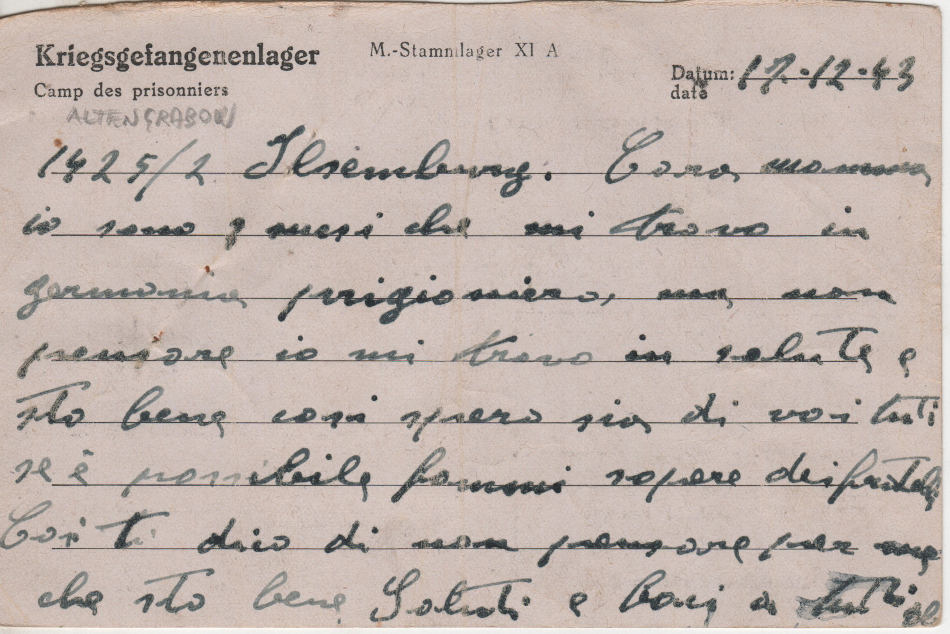 Kriegsgefangenenlager
M.-Stammlager XI A
Camp des prisonniers
Datum: 17-12-43
date
ALTENGRABOW
1425/2 Ilsemburg. Cara mamma
io sono 3 mesi che mi trovo in
germania prigioniero, ma non
pensare io mi trovo in salute e
sto bene cosi spero sia di voi tuti
se è possibile fammi sapere dei fratelli
Cosi ti dico di non pensare per me
che sto bene Saluti e baci a tutti